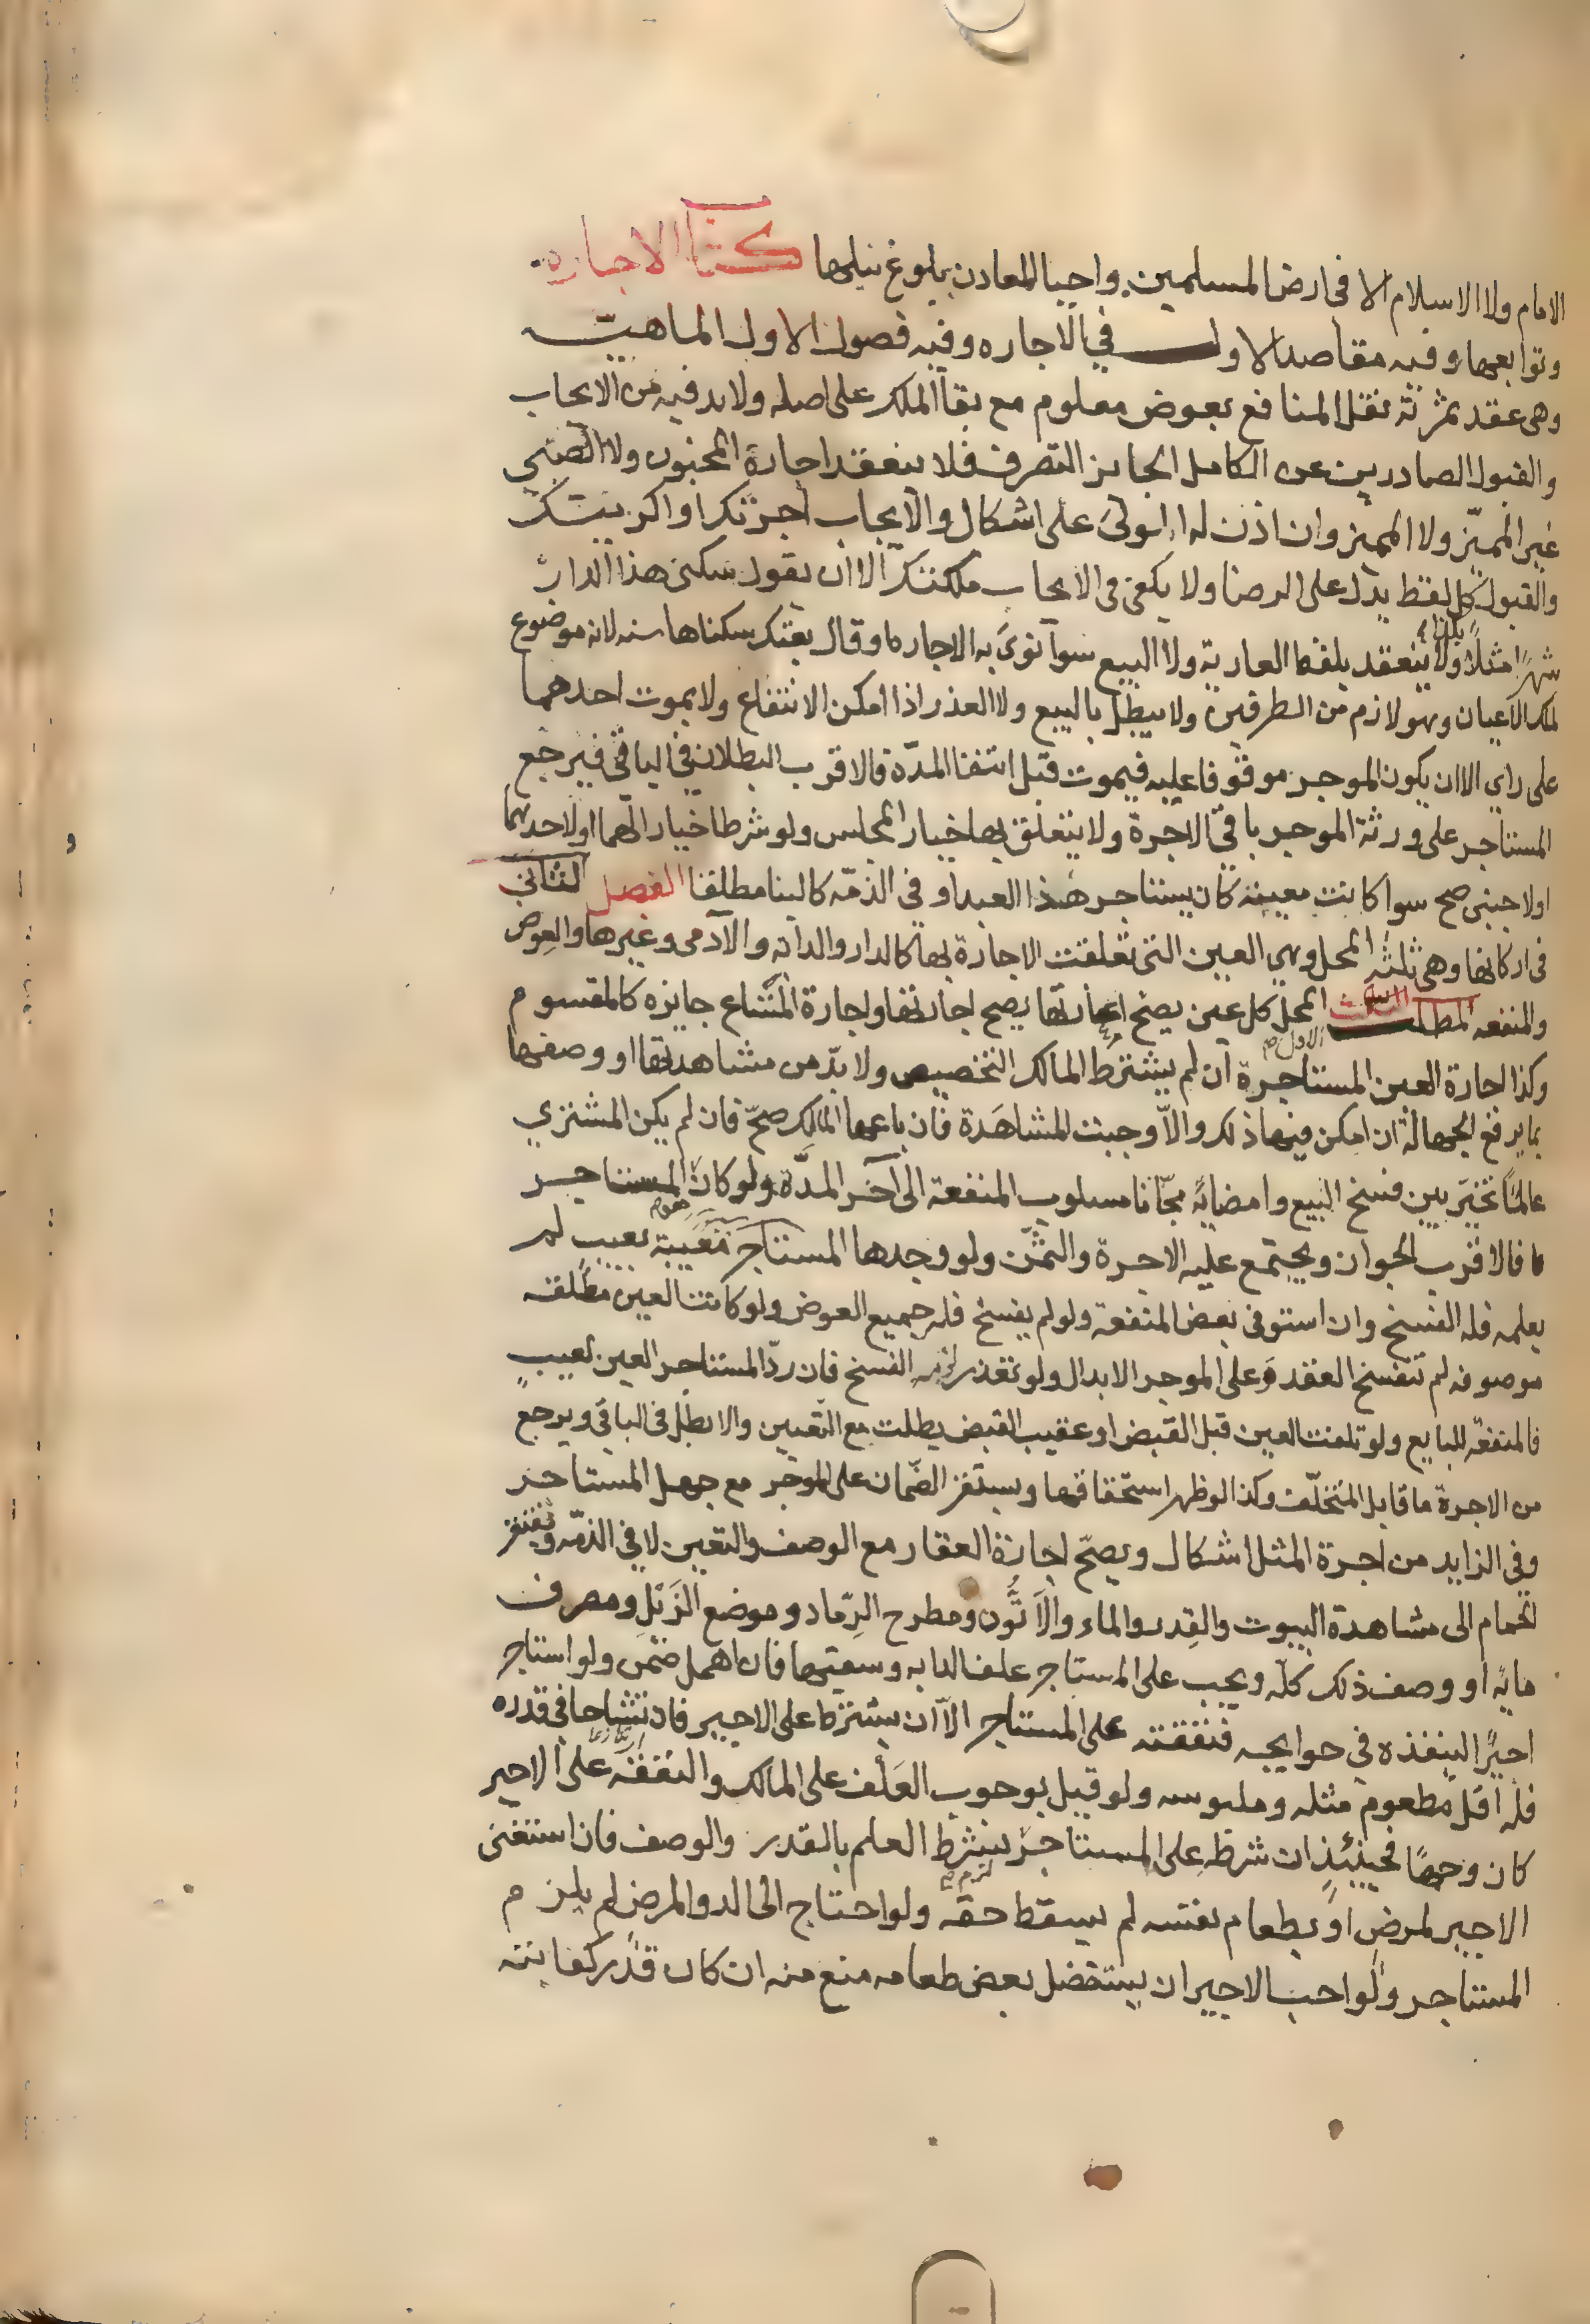 الامام ولا الاسلام الا في ارض المسلمين واحيا المعادن ببلوغ نيلها كتاب الاجاره
وتوابعها وفيه مقاصد الاول في الاجاره وفيه فصول الاول الماهية
وهي عقد ثمرته نقل المنافع بعوض معلوم مع بقا الملك على اصله ولا بد فيه من الايجاب
والقبول الصادرين عن الكامل الجايز التصرف فلا ينعقد اجارة المجنون ولا الصبي
غير المميّز ولا المميز وان اذن له الولي على اشكال والايجاب اجرتك او اكريتك
والقبول كل لفظ يدل على الرضا ولا يكفي في الايجاب ملكتك الا ان يقول سكنى هذا الدار
شهرًا مثلًا ولا ينعقد بلفظ العارية ولا البيع سوا نوى به الاجاره او قال بعتك سكناها سنه لانه موضوع
لملك الاعيان وهو لازم من الطرفين ولا يبطل بالبيع ولا العذر اذا امكن الانتفاع ولا بموت احدهما
على راي الا ان يكون الموجر موقوفا عليه فيموت قبل انتفا المدّة فالاقرب البطلان في الباقي فيرجع
المستاجر على ورثة الموجر باقي الاجرة ولا يتعلق بها خيار المجلس ولو شرطا خيار الهما او لاحدهما
او لاجنبي صح سوا كانت معينة كان يستاجر هذا العبد او في الذمّه كالبنا مطلقا الفصل الثاني
في اركانها وهي ثلثه المحل وهي العين التي تعلقت الاجارة بها كالدار والدابه والآدمي وغيرها والعوض
والمنفعه المطلب الاول المحل كل عين يصح اعارتها يصح اجارتها واجارة المشاع جايزه كالمقسوم
وكذا اجارة العين المستاجرة ان لم يشترط المالك التخصيص ولا بدّ من مشاهدتها او وصفها
بما يرفع الجهالة ان امكن فيها ذلك والاّ وجبت المشاهَدة فان باعها المالك صحّ فان لم يكن المشتري
عالمًا تخيّر بين فسخ البيع وامضائه مجّانا مسلوب المنفعة الى آخر المدّة ولو كان المستاجر
فالاقرب الجواز ويجتمع عليه الاجرة والثمن ولو وجدها المستاجر معيبة بعيب لم
يعلمه فله الفسخ وان استوفى بعض المنفعة ولو لم يفسخ فله جميع العوض ولو كانت العين مطلقه
موصوفه لم تنفسخ العقد وعلى الموجر الابدال ولو تعذر لزمه الفسخ فان ردّ المستاجر العين لعيبٍ
فالمنفعة للبايع ولو تلفت العين قبل القبض او عقيب القبض بطلت مع التعيين والا بطل في الباقي ويرجع
من الاجرة ما قابل المتخلّف وكذا لو ظهر استحقاقها ويستقر الضّمان على الموجر مع جهل المستاجر
وفي الزايد من اجرة المثل اشكال ويصحّ اجارة العقار مع الوصف والتعيين لا في الذمّه ويفتقر
الحمام الى مشاهدة البيوت والقِدر والماء والاَتُّون ومطرح الرِّماد وموضع الزَبْل ومصرف
مايه او وصف ذلك كلّه ويجب على المستاجر علف الدابه وسقيها فان اهمل ضمن ولو استاجر
اجيرًا لينفذه في حوايجه فنفقته على المستاجر الاّ ان يشترط على الاجير فان تشاحا في قدره
فله اقل مطعوم مثله وملبوسه ولو قيل بوجوب العَلَف على المالك والنفقة على الاجير
كان وجهًا فحينئذٍ ان شرط على المستاجر لزم بشرط العلم بالقدر والوصف فان استغنى
الاجير لمرض او بطعام نفسه لم يسقط حقه ولو احتاج الى الدو المرض لم يلزم
المستاجر ولو احب الاجير ان يستفضل بعض طعامه منع منه ان كان قدر كفايته